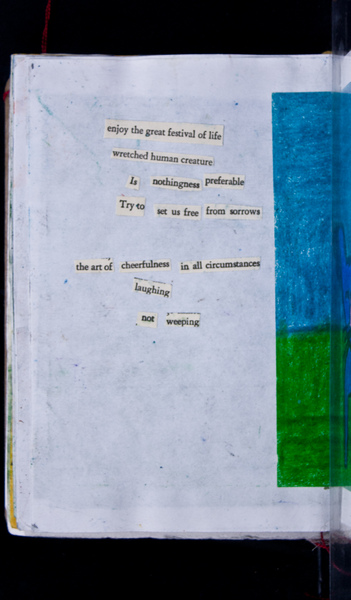 enjoy the great festival of life
wretched human creature
Is nothingness preferable
Try to set us free from sorrows
the art of cheerfulness in all circumstances
laughing
not weeping